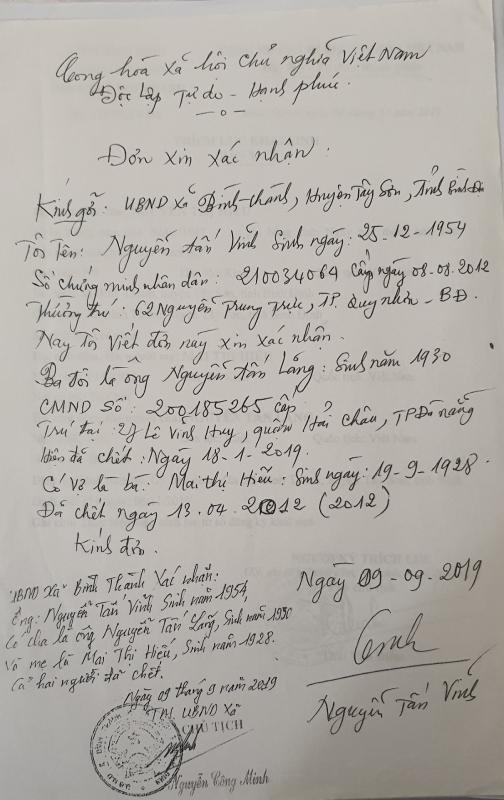 Cộng hòa Xã hội Chủ nghĩa Việt Nam
Độc lập Tự do - Hạnh phúc.
— o —
Đơn xin xác nhận.
Kính gởi: UBND xã Bình-thành, Huyện Tây Sơn, Tỉnh Bình Định
Tôi Tên: Nguyễn tấn Vĩnh Sinh ngày: 25-12-1954
Số chứng minh nhân dân: 210034064 cấp ngày 08-08-2012
Thường trú: 62 Nguyễn Trung Trực, TP. Quy nhơn - BĐ.
Nay Tôi Viết đơn này xin xác nhận.
Ba tôi là ông Nguyễn tấn Lãng: Sinh năm 1930
CMND Số: 200185265 cấp
Trú tại: 27 Lê Vĩnh Huy, quận Hải châu, TP Đà nẵng
Hiện đã chết: Ngày 18-1-2019.
Có vợ là bà: Mai thị Hiếu: Sinh ngày: 19-9-1928.
Đã chết ngày 13.04.2012 (2012)
Kính đơn.
Ngày 09-09-2019
Nguyễn Tấn Vĩnh
UBND xã Bình Thành Xác nhận:
Ông: Nguyễn Tấn Vĩnh Sinh năm 1954,
Có cha là ông Nguyễn Tấn Lãng, Sinh năm 1930
Và mẹ là Mai Thị Hiếu, Sinh năm 1928.
Cả hai người đã chết.
Ngày 09 tháng 9 năm 2019
TM. UBND Xã
CHỦ TỊCH
Nguyễn Công Minh